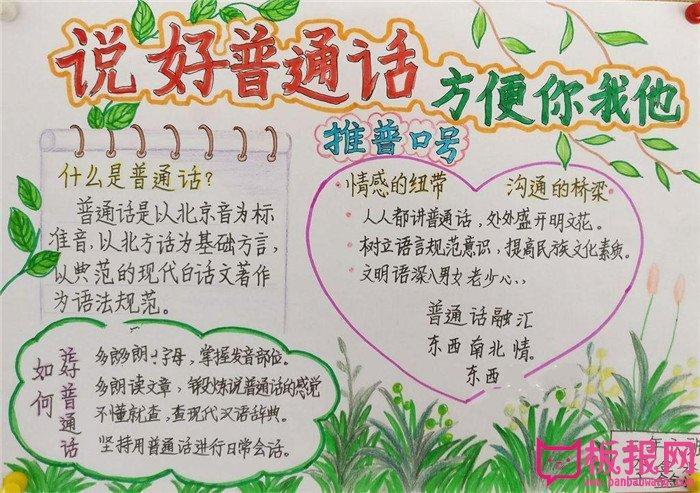 说好普通话
方便你我他
推普口号
什么是普通话?
普通话是以北京音为标
准音,以北方话为基础方言,
以典范的现代白话文著作
为语法规范。
·情感的纽带 沟通的桥梁
·人人都讲普通话,处处盛开明文花。
·树立语言规范意识,提高民族文化素质。
·文明语深入男女老少心、、
普通话融汇
东西南北情。
东西
如何
好普通话
多朗多朗 字母,掌握发音部位。
多朗读文章,锻炼说普通话的感觉
不懂就查,查现代汉语辞典。
坚持用普通话进行日常会话。
板报网
www.banbaowang.com